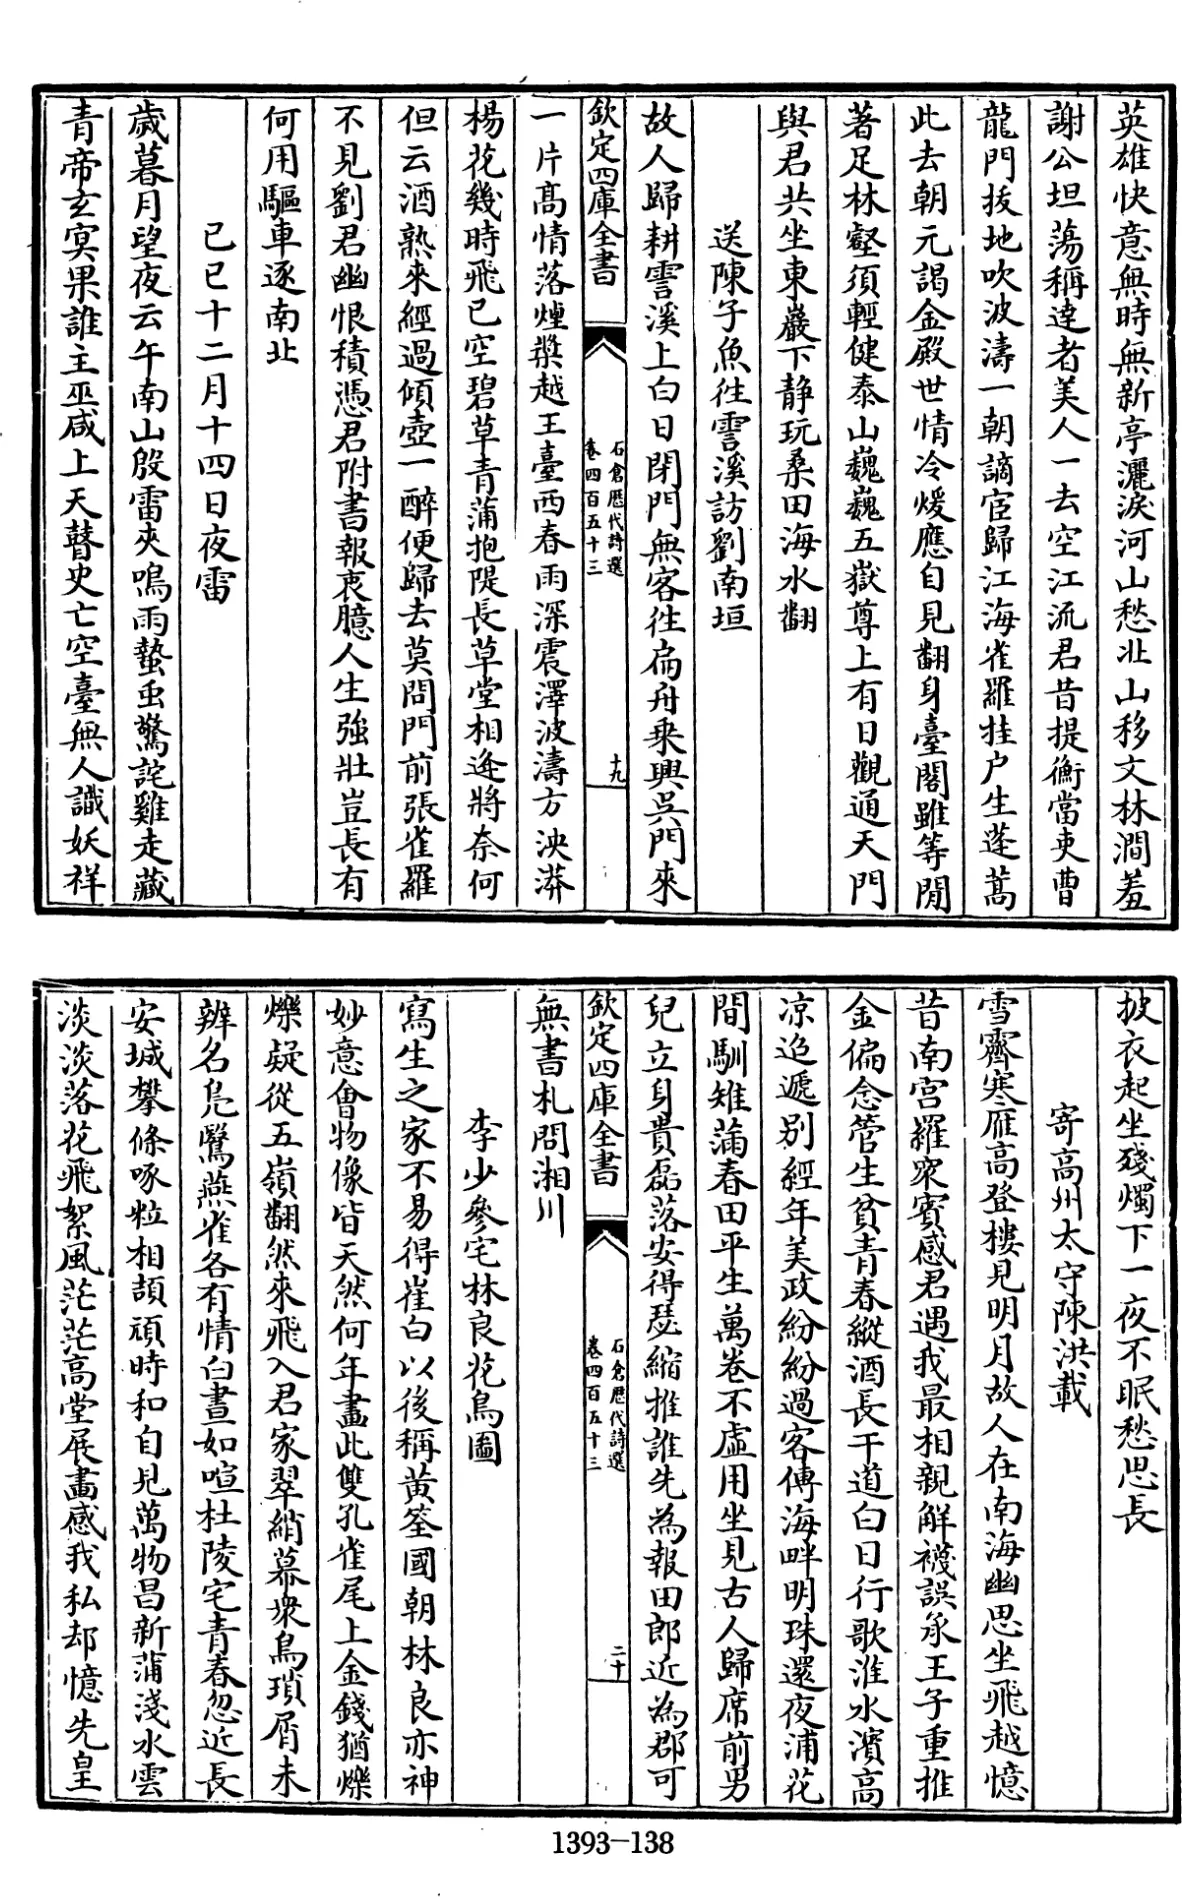 英雄快意無時無新亭灑淚河山愁北山移文林澗羞
謝公坦蕩稱達者美人一去空江流君昔提衡當吏曹
龍門拔地吹波濤一朝謫宦歸江海雀羅挂户生蓬蒿
此去朝元謁金殿世情冷煖應自見翻身臺閣雖等閒
著足林壑須輕健泰山巍巍五嶽尊上有日觀通天門
與君共坐東巖下静玩桑田海水翻
送陳子魚往霅溪訪劉南垣
故人歸耕霅溪上白日閉門無客往扁舟乗興吳門來
欽定四庫全書
石倉歷代詩選
卷四百五十三
十九
一片高情落煙槳越王臺西春雨深震澤波濤方泱漭
楊花幾時飛已空碧草青蒲抱隄長草堂相逢將奈何
但云酒熟來經過傾壺一醉便歸去莫問門前張雀羅
不見劉君幽恨積憑君附書報衷臆人生強壯豈長有
何用驅車逐南北
己巳十二月十四日夜雷
歲暮月望夜云午南山殷雷夾鳴雨蟄虫驚詫雞走藏
青帝玄冥果誰主巫咸上天瞽史亡空臺無人識妖祥
披衣起坐殘燭下一夜不眠愁思長
寄高州太守陳洪載
雪霽寒雁高登樓見明月故人在南海幽思坐飛越憶
昔南宫羅衆賓感君遇我最相親解襪誤承王子重推
金偏念管生貧青春縱酒長干道白日行歌淮水濱高
凉迢遞别經年美政紛紛過客傳海畔明珠還夜浦花
間馴雉滿春田平生萬卷不虛用坐見古人歸席前男
兒立身貴磊落安得瑟縮推誰先為報田郎近為郡可
欽定四庫全書
石倉歷代詩選
卷四百五十三
二十
無書札問湘川
李少參宅林良花鳥圖
寫生之家不易得崔白以後稱黄筌國朝林良亦神
妙意會物像皆天然何年畫此雙孔雀尾上金錢猶爍
爍疑從五嶺翻然來飛入君家翠綃幕衆鳥瑣屑未
辨名鳧鷖燕雀各有情白晝如喧杜陵宅青春忽近長
安城攀條啄粒相頡頏時和自見萬物昌新蒲淺水雲
淡淡落花飛絮風茫茫高堂展畫感我私却憶先皇
1393-138